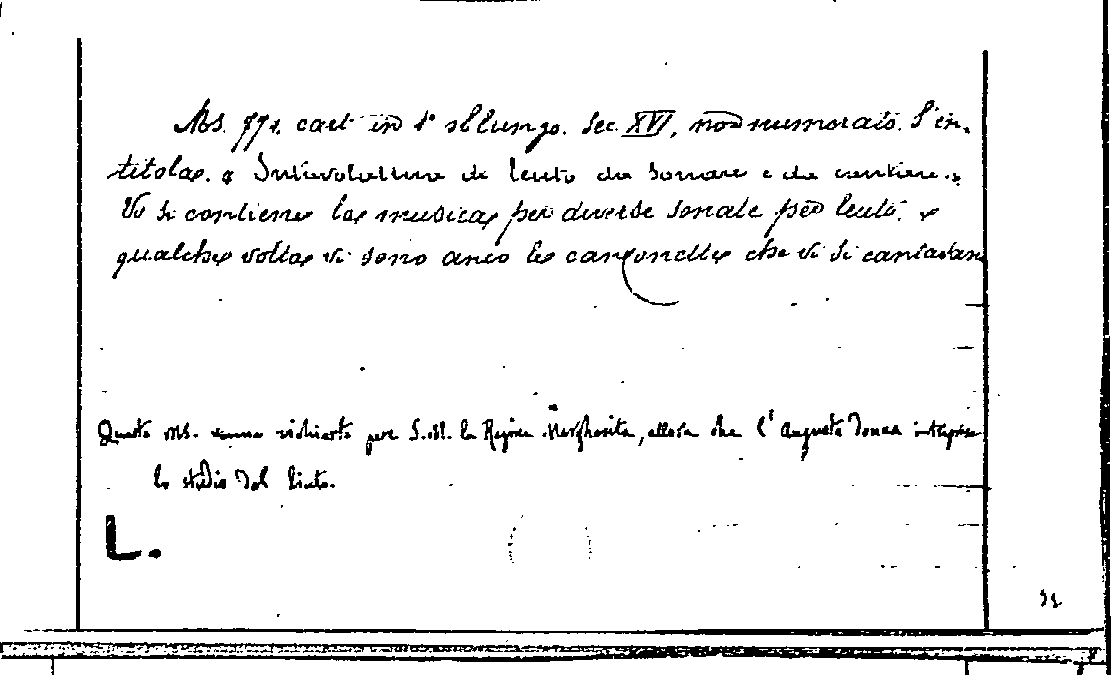 Ms. 771. cart. in 4° oblungo. Sec. XVI, non numerato. S'in-
titola. « Intavolatura di leuto da sonare e da cantare. »
Vi si contiene la musica per diverse sonate per leuto, e
qualche volta vi sono anco le canzonette che vi si cantavan
Questo ms. venne richiesto per S. M. la Regina Margherita, allora che l'Augusta Donna intraprese
lo studio del liuto.
L.